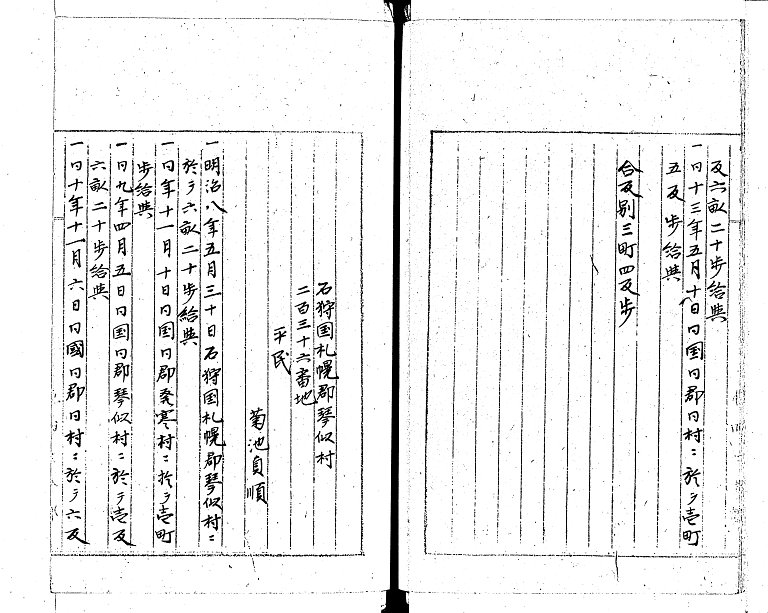 反六畝二十歩給与
一同十三年五月十日同国同郡同村ニ於テ壱町
五反歩給与
合反別三町四反歩
石狩国札幌郡琴似村
二百三十六番地
平民
菊池貞順
一明治八年五月三十日石狩国札幌郡琴似村ニ
於テ六畝二十歩給与
一同年十一月十日同国同郡発寒村ニ於テ壱町
歩給与
一同九年四月五日同国同郡琴似村ニ於テ壱反
六畝二十歩給与
一同十年十一月六日同國同郡同村ニ於テ六反